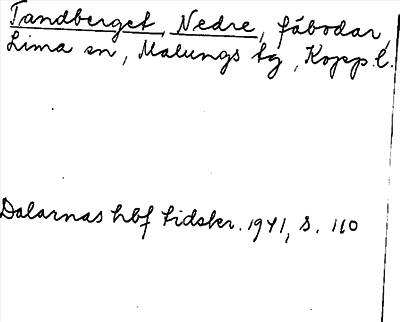 Tandberget, Nedre, fäbodar,
Lima sn, Malungs tg, Kopp. l.
Dalarnas hbf tidskr. 1941, s. 110